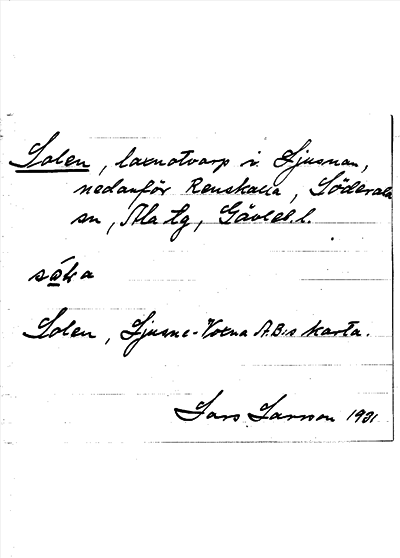 Solen, laxnotvarp i Ljusnan,
nedanför Renskalla, Söderala
sn, Ala tg, Gävleb. l.
såka
Solen, Ljusne-Voxna A.B:s karta.
Lars Larsson 1931